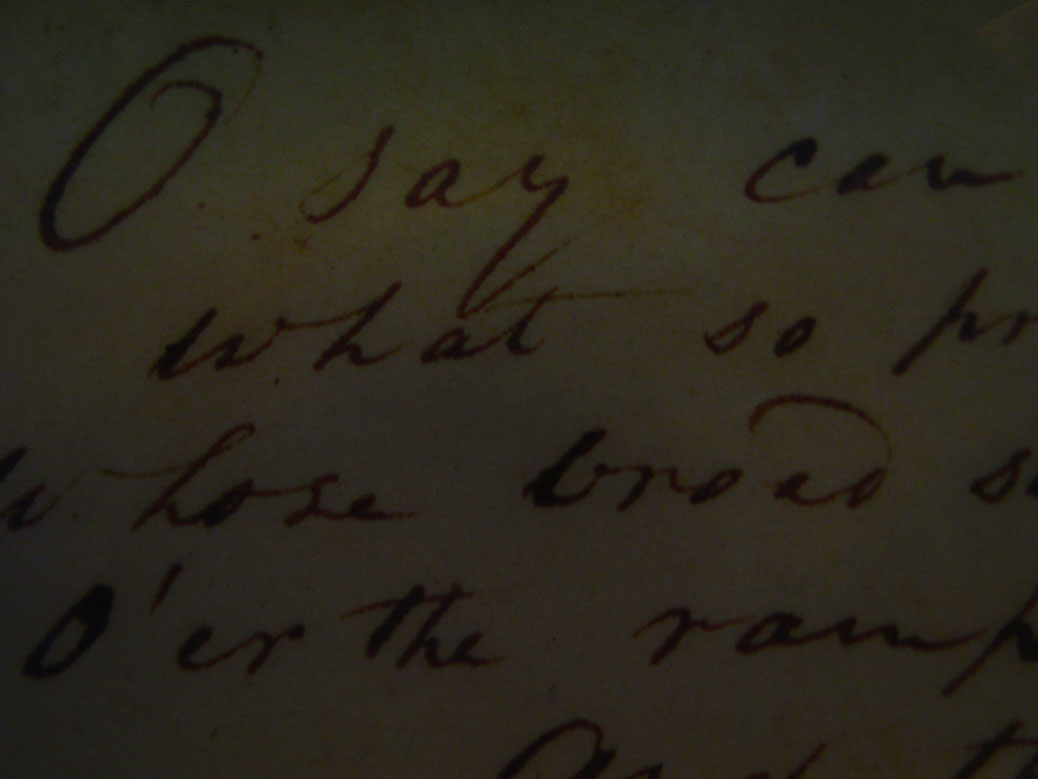 O say can
what so pr
whose broad s
O'er the ramp
And th